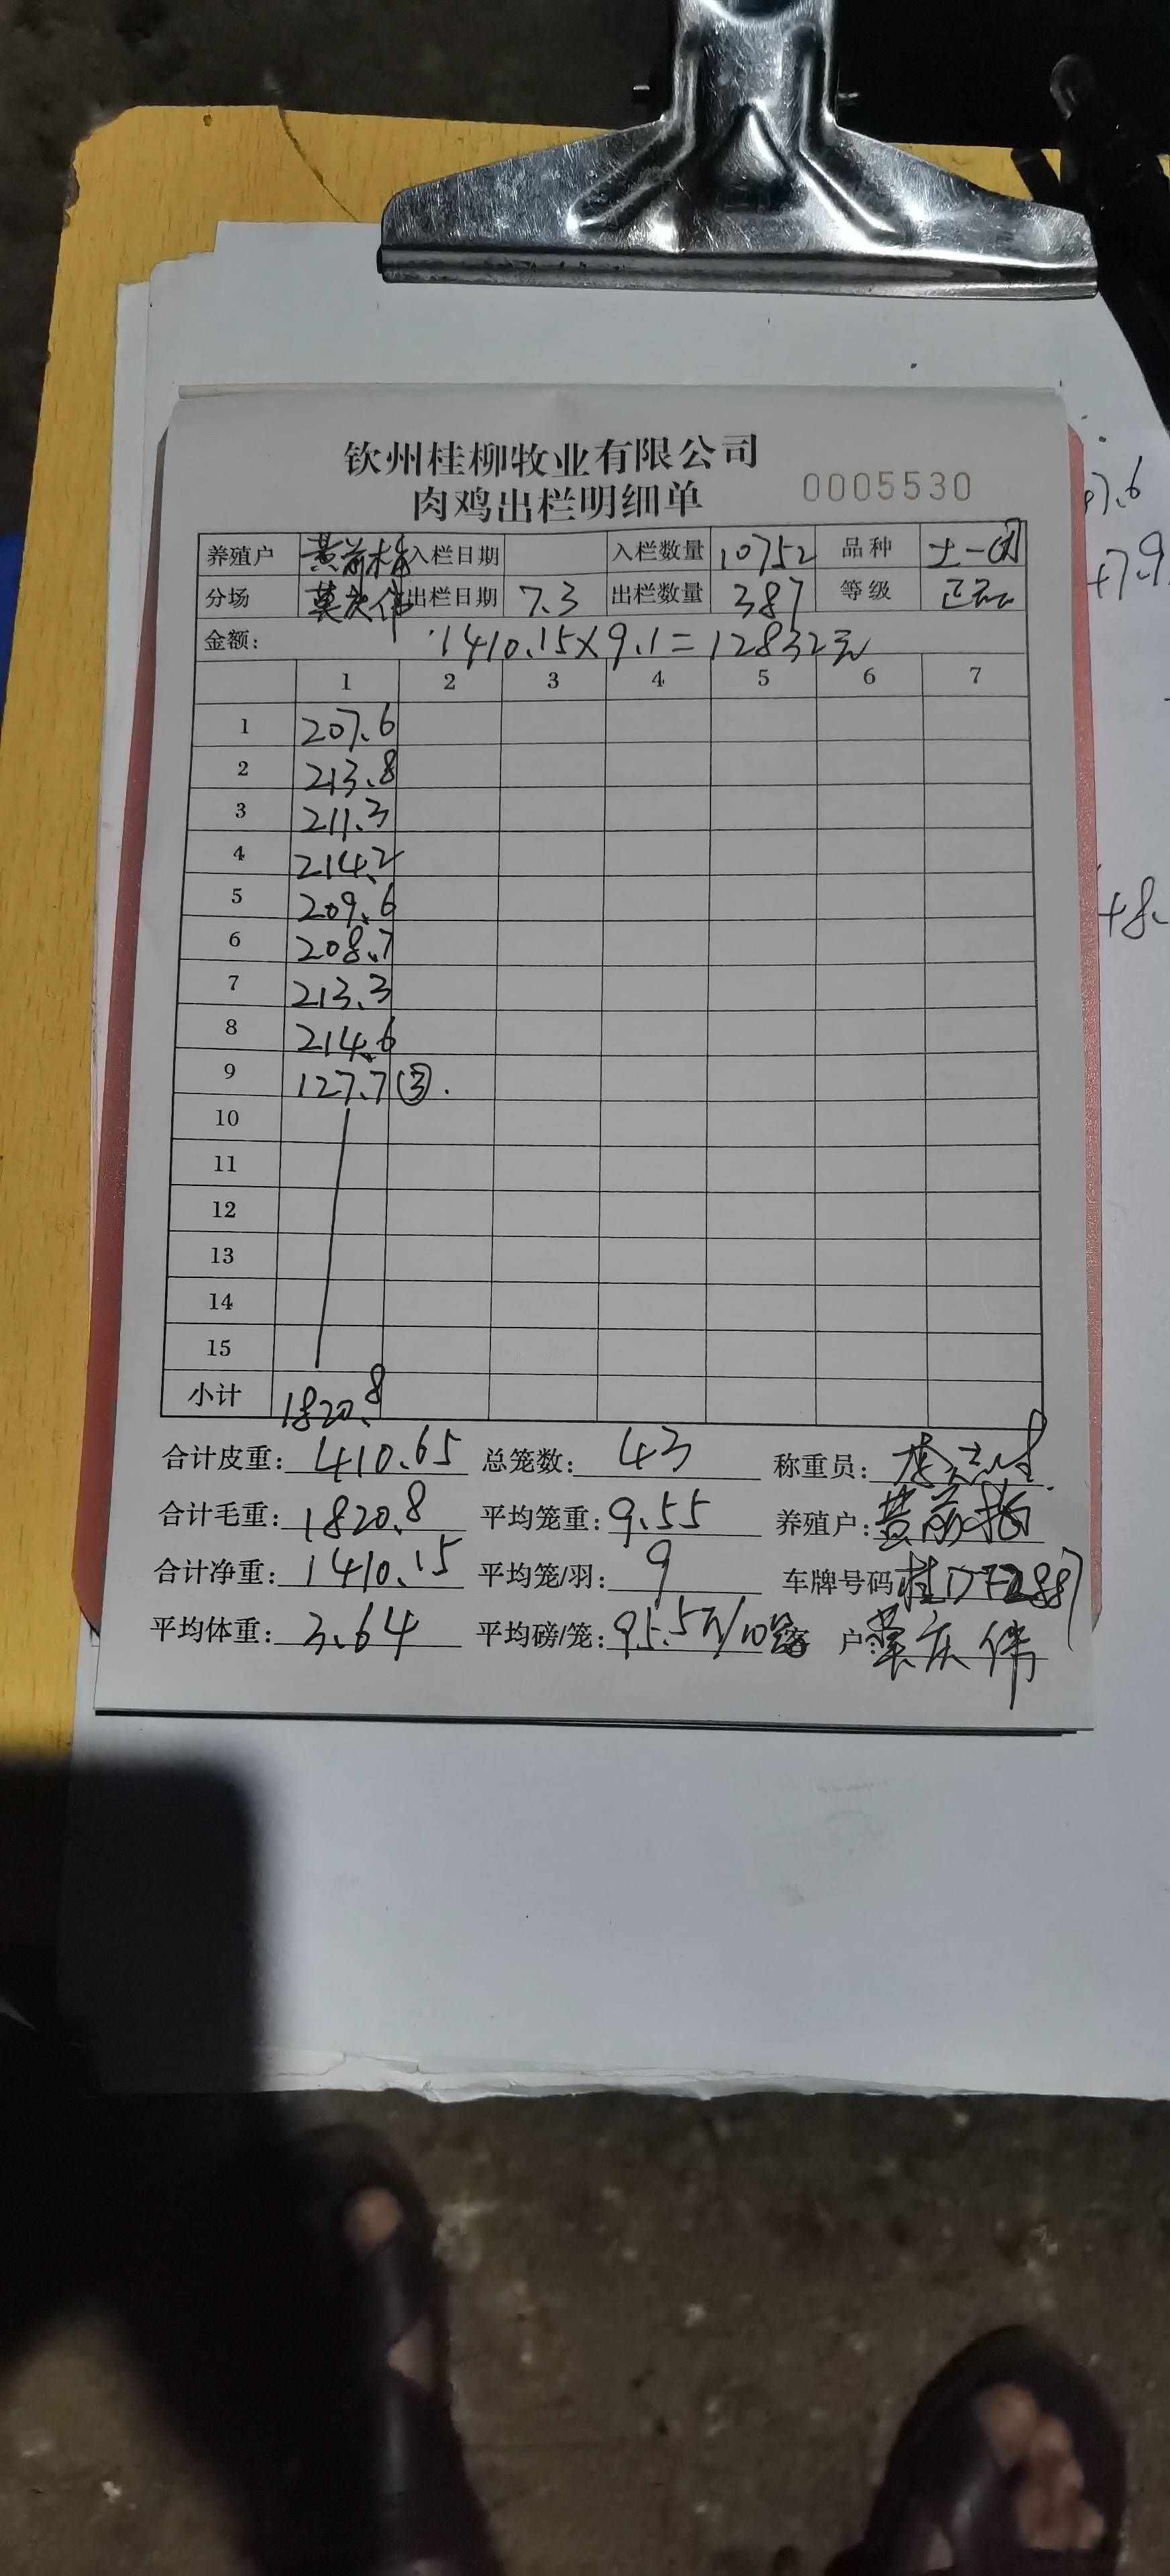 钦州桂柳牧业有限公司
肉鸡出栏明细单 0005530
养殖户 入栏日期 入栏数量 10752 品种 土一
分场 出栏日期 7.3 出栏数量 387 等级 正品
金额: 1410.15×9.1=12832元
1 2 3 4 5 6 7
1 207.6
2 213.8
3 211.3
4 214.2
5 209.6
6 208.7
7 213.3
8 214.6
9 127.7 (3).
10
11
12
13
14
15
小计 1820.8
合计皮重: 410.65 总笼数: 43 称重员:
合计毛重: 1820.8 平均笼重: 9.55 养殖户:
合计净重: 1410.15 平均笼/羽: 9 车牌号码
平均体重: 3.64 平均磅/笼: 95.5斤/10 户:
7.6
+7.9
+8.